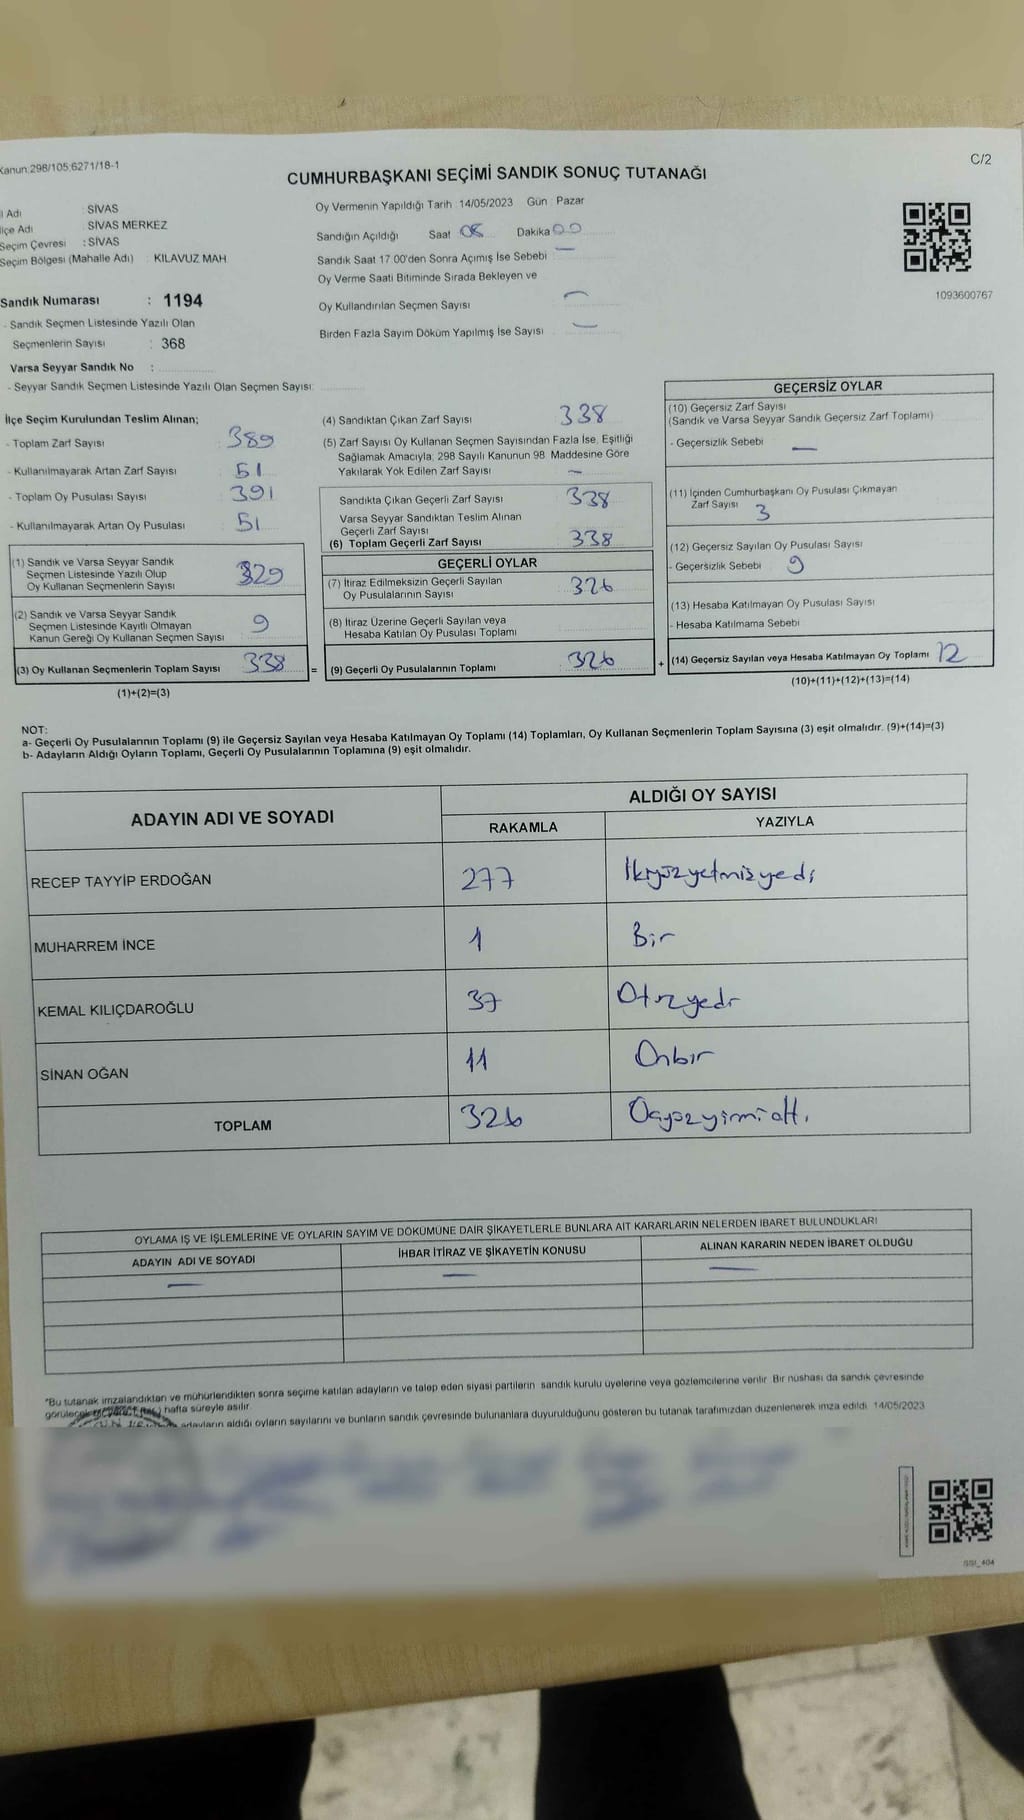 Kanun:298/105;6271/18-1
C/2
CUMHURBAŞKANI SEÇİMİ SANDIK SONUÇ TUTANAĞI
l Adı : SİVAS
lçe Adı : SİVAS MERKEZ
Seçim Çevresi : SİVAS
Seçim Bölgesi (Mahalle Adı) : KILAVUZ MAH
Sandık Numarası : 1194
- Sandık Seçmen Listesinde Yazılı Olan
Seçmenlerin Sayısı : 368
Varsa Seyyar Sandık No :
- Seyyar Sandık Seçmen Listesinde Yazılı Olan Seçmen Sayısı:
Oy Vermenin Yapıldığı Tarih : 14/05/2023 Gün : Pazar
Sandığın Açıldığı Saat 08 Dakika 00
Sandık Saat 17:00'den Sonra Açımış İse Sebebi —
Oy Verme Saati Bitiminde Sırada Bekleyen ve
Oy Kullandırılan Seçmen Sayısı —
Birden Fazla Sayım Döküm Yapılmış İse Sayısı —
1093600767
İlçe Seçim Kurulundan Teslim Alınan;
- Toplam Zarf Sayısı 389
- Kullanılmayarak Artan Zarf Sayısı 51
- Toplam Oy Pusulası Sayısı 391
- Kullanılmayarak Artan Oy Pusulası 51
(1) Sandık ve Varsa Seyyar Sandık
Seçmen Listesinde Yazılı Olup
Oy Kullanan Seçmenlerin Sayısı 329
(2) Sandık ve Varsa Seyyar Sandık
Seçmen Listesinde Kayıtlı Olmayan
Kanun Gereği Oy Kullanan Seçmen Sayısı 9
(3) Oy Kullanan Seçmenlerin Toplam Sayısı 338
(1)+(2)=(3)
(4) Sandıktan Çıkan Zarf Sayısı 338
(5) Zarf Sayısı Oy Kullanan Seçmen Sayısından Fazla İse, Eşitliği
Sağlamak Amacıyla; 298 Sayılı Kanunun 98. Maddesine Göre
Yakılarak Yok Edilen Zarf Sayısı —
Sandıkta Çıkan Geçerli Zarf Sayısı 338
Varsa Seyyar Sandıktan Teslim Alınan
Geçerli Zarf Sayısı
(6) Toplam Geçerli Zarf Sayısı 338
GEÇERLİ OYLAR
(7) İtiraz Edilmeksizin Geçerli Sayılan
Oy Pusulalarının Sayısı 326
(8) İtiraz Üzerine Geçerli Sayılan veya
Hesaba Katılan Oy Pusulası Toplamı
= (9) Geçerli Oy Pusulalarının Toplamı 326
GEÇERSİZ OYLAR
(10) Geçersiz Zarf Sayısı
(Sandık ve Varsa Seyyar Sandık Geçersiz Zarf Toplamı)
- Geçersizlik Sebebi —
(11) İçinden Cumhurbaşkanı Oy Pusulası Çıkmayan
Zarf Sayısı 3
(12) Geçersiz Sayılan Oy Pusulası Sayısı
- Geçersizlik Sebebi 9
(13) Hesaba Katılmayan Oy Pusulası Sayısı
- Hesaba Katılmama Sebebi
+ (14) Geçersiz Sayılan veya Hesaba Katılmayan Oy Toplamı 12
(10)+(11)+(12)+(13)=(14)
NOT:
a- Geçerli Oy Pusulalarının Toplamı (9) ile Geçersiz Sayılan veya Hesaba Katılmayan Oy Toplamı (14) Toplamları, Oy Kullanan Seçmenlerin Toplam Sayısına (3) eşit olmalıdır. (9)+(14)=(3)
b- Adayların Aldığı Oyların Toplamı, Geçerli Oy Pusulalarının Toplamına (9) eşit olmalıdır.
ADAYIN ADI VE SOYADI ALDIĞI OY SAYISI
RAKAMLA YAZIYLA
RECEP TAYYİP ERDOĞAN 277 İkiyüzyetmişyedi
MUHARREM İNCE 1 Bir
KEMAL KILIÇDAROĞLU 37 Otuzyedi
SİNAN OĞAN 11 Onbir
TOPLAM 326 Üçyüzyirmialtı
OYLAMA İŞ VE İŞLEMLERİNE VE OYLARIN SAYIM VE DÖKÜMÜNE DAİR ŞİKAYETLERLE BUNLARA AİT KARARLARIN NELERDEN İBARET BULUNDUKLARI
ADAYIN ADI VE SOYADI İHBAR İTİRAZ VE ŞİKAYETİN KONUSU ALINAN KARARIN NEDEN İBARET OLDUĞU
— — —
*Bu tutanak imzalandıktan ve mühürlendikten sonra seçime katılan adayların ve talep eden siyasi partilerin sandık kurulu üyelerine veya gözlemcilerine verilir. Bir nüshası da sandık çevresinde
hafta süreyle asılır.
adayların aldığı oyların sayılarını ve bunların sandık çevresinde bulunanlara duyurulduğunu gösteren bu tutanak tarafımızdan düzenlenerek imza edildi. 14/05/2023